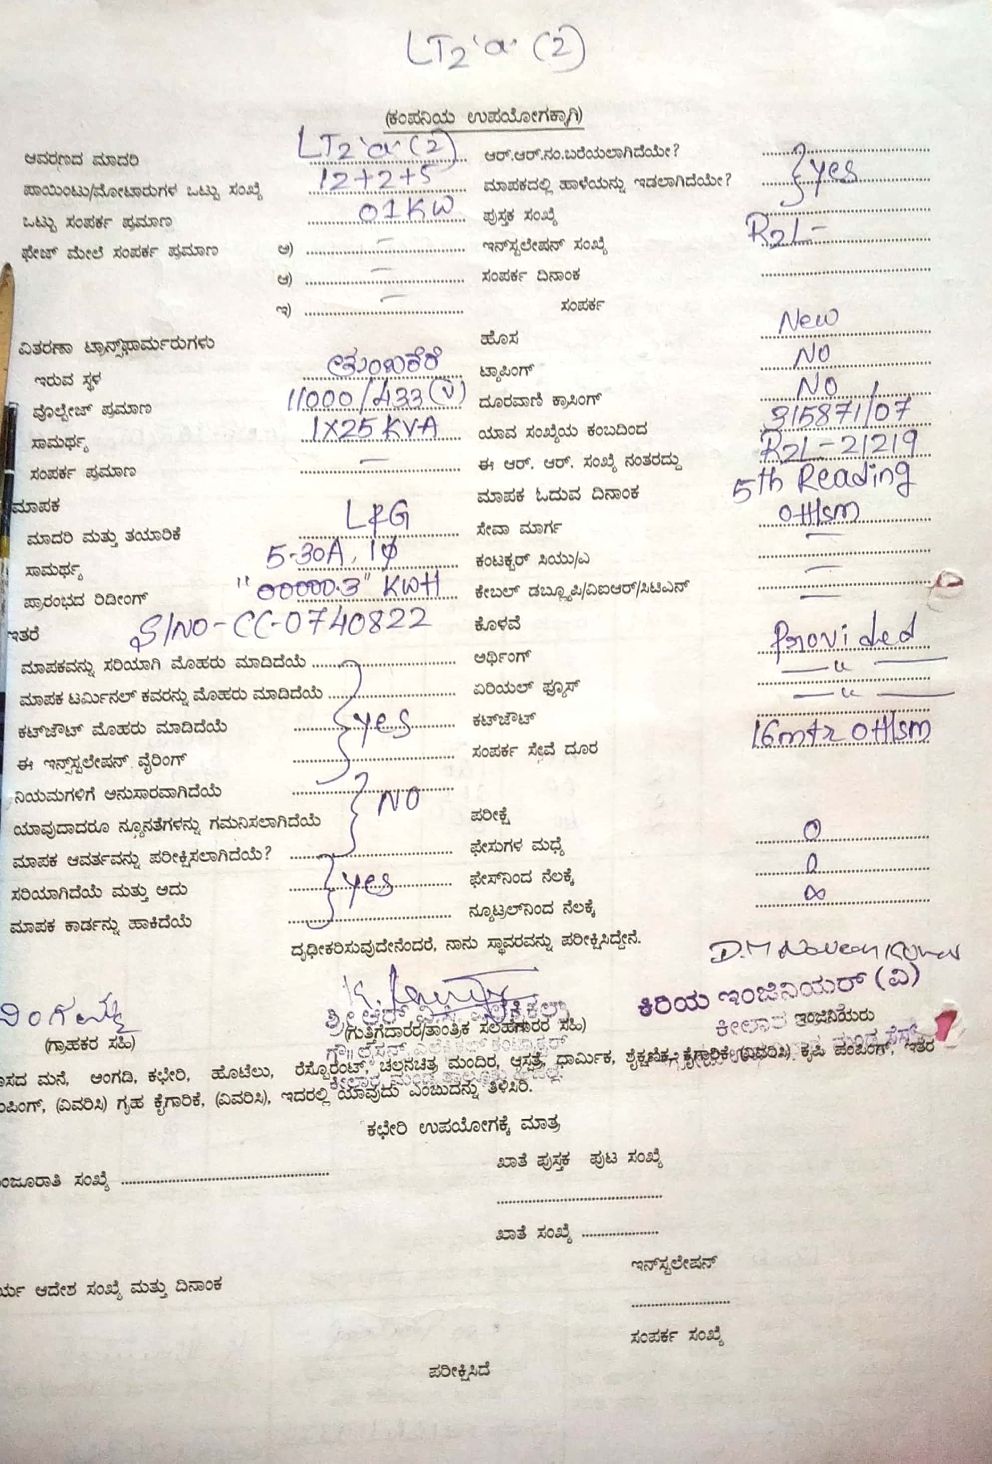 LT2 'a' (2)
(ಕಂಪನಿಯ ಉಪಯೋಗಕ್ಕಾಗಿ)
ಆವರಣದ ಮಾದರಿ LT2 'a' (2) ಆರ್.ಆರ್.ನಂ.ಬರೆಯಲಾಗಿದೆಯೇ?
ಪಾಯಿಂಟು/ಮೋಟಾರುಗಳ ಒಟ್ಟು ಸಂಖ್ಯೆ 12+2+5 ಮಾಪಕದಲ್ಲಿ ಹಾಳೆಯನ್ನು ಇಡಲಾಗಿದೆಯೇ? } yes
ಒಟ್ಟು ಸಂಪರ್ಕ ಪ್ರಮಾಣ 01KW ಪುಸ್ತಕ ಸಂಖ್ಯೆ
ಫೇಜ್ ಮೇಲೆ ಸಂಪರ್ಕ ಪ್ರಮಾಣ ಅ) — ಇನ್‌ಸ್ಟಲೇಷನ್ ಸಂಖ್ಯೆ R2L-
ಆ) — ಸಂಪರ್ಕ ದಿನಾಂಕ
ಇ) — ಸಂಪರ್ಕ
ವಿತರಣಾ ಟ್ರಾನ್ಸ್‌ಫಾರ್ಮರುಗಳು ಹೊಸ New
ಇರುವ ಸ್ಥಳ ತುಂಬಕೆರೆ ಟ್ಯಾಪಿಂಗ್ NO
ವೊಲ್ಟೇಜ್ ಪ್ರಮಾಣ 11000/433(V) ದೂರವಾಣಿ ಕ್ರಾಸಿಂಗ್ NO
ಸಾಮರ್ಥ್ಯ 1X25 KVA ಯಾವ ಸಂಖ್ಯೆಯ ಕಂಬದಿಂದ 315871/07
ಸಂಪರ್ಕ ಪ್ರಮಾಣ — ಈ ಆರ್. ಆರ್. ಸಂಖ್ಯೆ ನಂತರದ್ದು R2L-21219
ಮಾಪಕ ಮಾಪಕ ಓದುವ ದಿನಾಂಕ 5th Reading
ಮಾದರಿ ಮತ್ತು ತಯಾರಿಕೆ L&G ಸೇವಾ ಮಾರ್ಗ OH/sm
ಸಾಮರ್ಥ್ಯ 5-30A, 1φ ಕಂಟಕ್ಟರ್ ಸಿಯು/ಎ —
ಪ್ರಾರಂಭದ ರಿಡೀಂಗ್ "00000.3" KWH ಕೇಬಲ್ ಡಬ್ಲ್ಯೂಪಿ/ವಿಐಆರ್/ಸಿಟಿಎನ್ —
ಇತರೆ S/NO-CC-0740822 ಕೊಳವೆ —
ಮಾಪಕವನ್ನು ಸರಿಯಾಗಿ ಮೊಹರು ಮಾಡಿದೆಯೆ ಆರ್ಥಿಂಗ್ Provided
ಮಾಪಕ ಟರ್ಮಿನಲ್ ಕವರನ್ನು ಮೊಹರು ಮಾಡಿದೆಯೆ ಏರಿಯಲ್ ಫ್ಯೂಸ್ —"—
ಕಟ್‌ಔಟ್ ಮೊಹರು ಮಾಡಿದೆಯೆ } yes ಕಟ್‌ಔಟ್ —"—
ಈ ಇನ್‌ಸ್ಟಲೇಷನ್ ವೈರಿಂಗ್ ಸಂಪರ್ಕ ಸೇವೆ ದೂರ 16mtr OH/sm
ನಿಯಮಗಳಿಗೆ ಅನುಸಾರವಾಗಿದೆಯೆ
ಯಾವುದಾದರೂ ನ್ಯೂನತೆಗಳನ್ನು ಗಮನಿಸಲಾಗಿದೆಯೆ } NO ಪರೀಕ್ಷೆ
ಮಾಪಕ ಆವರ್ತವನ್ನು ಪರೀಕ್ಷಿಸಲಾಗಿದೆಯೆ? ಫೇಸುಗಳ ಮಧ್ಯೆ 0
ಸರಿಯಾಗಿದೆಯೆ ಮತ್ತು ಅದು } yes ಫೇಸ್‌ನಿಂದ ನೆಲಕ್ಕೆ 0
ಮಾಪಕ ಕಾರ್ಡನ್ನು ಹಾಕಿದೆಯೆ ನ್ಯೂಟ್ರಲ್‌ನಿಂದ ನೆಲಕ್ಕೆ ∞
ದೃಢೀಕರಿಸುವುದೇನೆಂದರೆ, ನಾನು ಸ್ಥಾವರವನ್ನು ಪರೀಕ್ಷಿಸಿದ್ದೇನೆ.
D.M Naveen Kumar
ಕಿರಿಯ ಇಂಜಿನಿಯರ್ (ವಿ)
(ಗ್ರಾಹಕರ ಸಹಿ) (ಗುತ್ತಿಗೆದಾರರ/ತಾಂತ್ರಿಕ ಸಲಹೆಗಾರರ ಸಹಿ) ಇಂಜಿನಿಯರು
ಕೀಲಾರ
ವಾಸದ ಮನೆ, ಅಂಗಡಿ, ಕಛೇರಿ, ಹೊಟೆಲು, ರೆಸ್ಟೊರೆಂಟ್, ಚಲನಚಿತ್ರ ಮಂದಿರ, ಆಸ್ಪತ್ರೆ, ಧಾರ್ಮಿಕ, ಶೈಕ್ಷಣಿಕ, ಕೈಗಾರಿಕೆ (ವಿವರಿಸಿ) ಕೃಷಿ ಪಂಪಿಂಗ್, ಇತರ
ಪಂಪಿಂಗ್, (ವಿವರಿಸಿ) ಗೃಹ ಕೈಗಾರಿಕೆ, (ವಿವರಿಸಿ), ಇದರಲ್ಲಿ ಯಾವುದು ಎಂಬುದನ್ನು ತಿಳಿಸಿರಿ.
ಕಛೇರಿ ಉಪಯೋಗಕ್ಕೆ ಮಾತ್ರ
ಮಂಜೂರಾತಿ ಸಂಖ್ಯೆ ಖಾತೆ ಪುಸ್ತಕ ಪುಟ ಸಂಖ್ಯೆ
ಖಾತೆ ಸಂಖ್ಯೆ
ಇನ್‌ಸ್ಟಲೇಷನ್
ರ್ಯ ಆದೇಶ ಸಂಖ್ಯೆ ಮತ್ತು ದಿನಾಂಕ
ಸಂಪರ್ಕ ಸಂಖ್ಯೆ
ಪರೀಕ್ಷಿಸಿದೆ